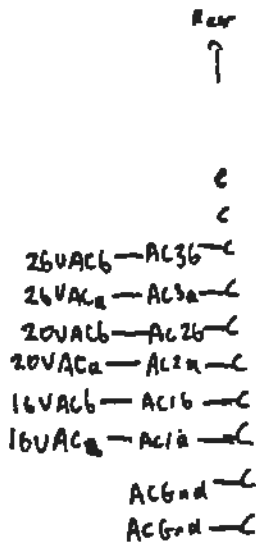 Rear
c
c
26VACb — AC3b — c
26VACa — AC3a — c
20VACb — AC2b — c
20VACa — AC2a — c
16VACb — AC1b — c
16VACa — AC1a — c
ACGnd — c
ACGnd — c